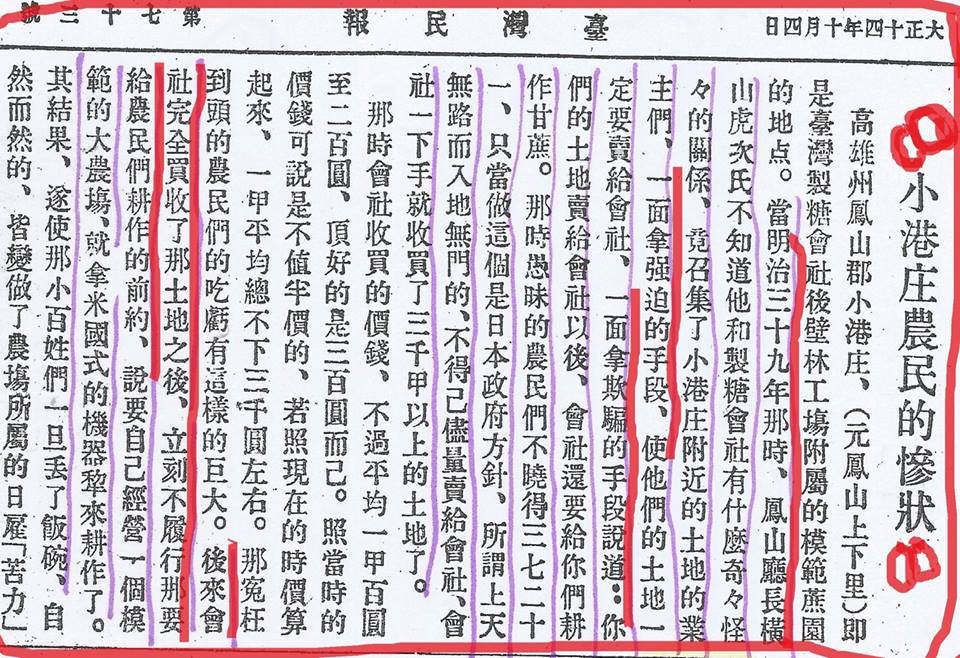 大正十四年十月四日
臺灣民報
第七十三號
小港庄農民的慘狀
高雄州鳳山郡小港庄、（元鳳山上下里）即
是臺灣製糖會社後壁林工塲附屬的模範蔗園
的地点。當明治三十九年那時、鳳山廳長橫
山虎次氏不知道他和製糖會社有什麼奇々怪
々的關係、竟召集了小港庄附近的土地的業
主們、一面拿强迫的手段、使他們的土地一
定要賣給會社、一面拿欺騙的手段說道：你
們的土地賣給會社以後、會社還要給你們耕
作甘蔗。那時愚昧的農民們不曉得三七二十
一、只當做這個是日本政府方針、所謂上天
無路而入地無門的、不得已儘量賣給會社、會
社一下手就收買了三千甲以上的土地了。
那時會社收買的價錢、不過平均一甲百圓
至二百圓、頂好的是三百圓而已。照當時的
價錢可說是不値半價的、若照現在的時價算
起來、一甲平均總不下三千圓左右。那寃枉
到頭的農民們的吃虧有這樣的巨大。後來會
社完全買收了那土地之後、立刻不履行那要
給農民們耕作的前約、說要自己經營一個模
範的大農塲、就拿米國式的機器犂來耕作了。
其結果、遂使那小百姓們一旦丢了飯碗、自
然而然的、皆變做了農塲所屬的日雇「苦力」